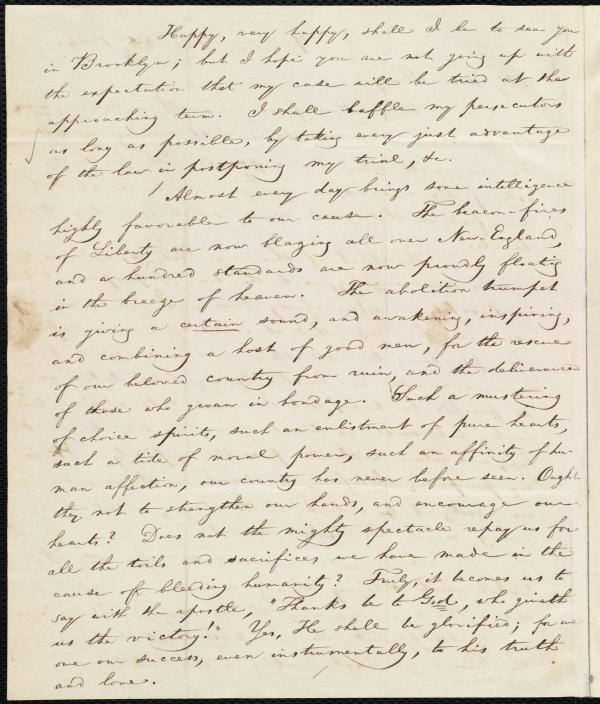 Happy, very happy, shall I be to see you
in Brooklyn; but I hope you are not giving up with
the expectation that my case will be tried at the
approaching term. I shall baffle my persecutors
as long as possible, by taking every just advantage
of the law in postponing my trial, &c.
Almost every day brings some intelligence
highly favorable to our cause. The beacon-fires
of Liberty are now blazing all over New-England,
and a hundred standards are now proudly floating
in the breeze of heaven. The abolition trumpet
is giving a certain sound, and awakening, inspiring,
and combining a host of good men, for the rescue
of our beloved country from ruin, and the deliverance
of those who groan in bondage. Such a mustering
of choice spirits, such an enlistment of pure hearts,
such a tide of moral power, such an affinity of hu-
man affection, our country has never before seen. Ought
they not to strengthen our hands, and encourage our
hearts? Does not the mighty spectacle repay us for
all the toils and sacrifices we have made in the
cause of bleeding humanity? Truly, it becomes us to
say with the apostle, "Thanks be to God, who giveth
us the victory!" Yes, He shall be glorified; for we
owe our success, even instrumentally, to his truth
and love.